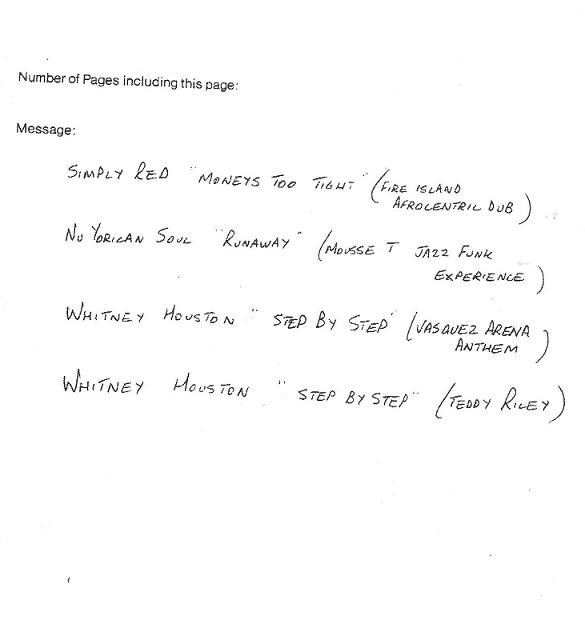 Number of Pages including this page:
Message:
SIMPLY RED "MONEYS TOO TIGHT" (FIRE ISLAND
AFROCENTRIC DUB)
NU YORICAN SOUL "RUNAWAY" (MOUSSE T JAZZ FUNK
EXPERIENCE)
WHITNEY HOUSTON "STEP BY STEP" (VASQUEZ ARENA
ANTHEM)
WHITNEY HOUSTON "STEP BY STEP" (TEDDY RILEY)